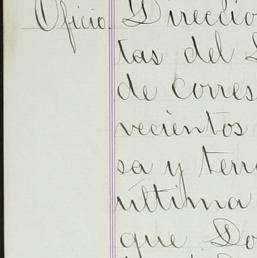 Oficio. Direccio
tas del
de corres
vecientos
sa y terr
última
que Do